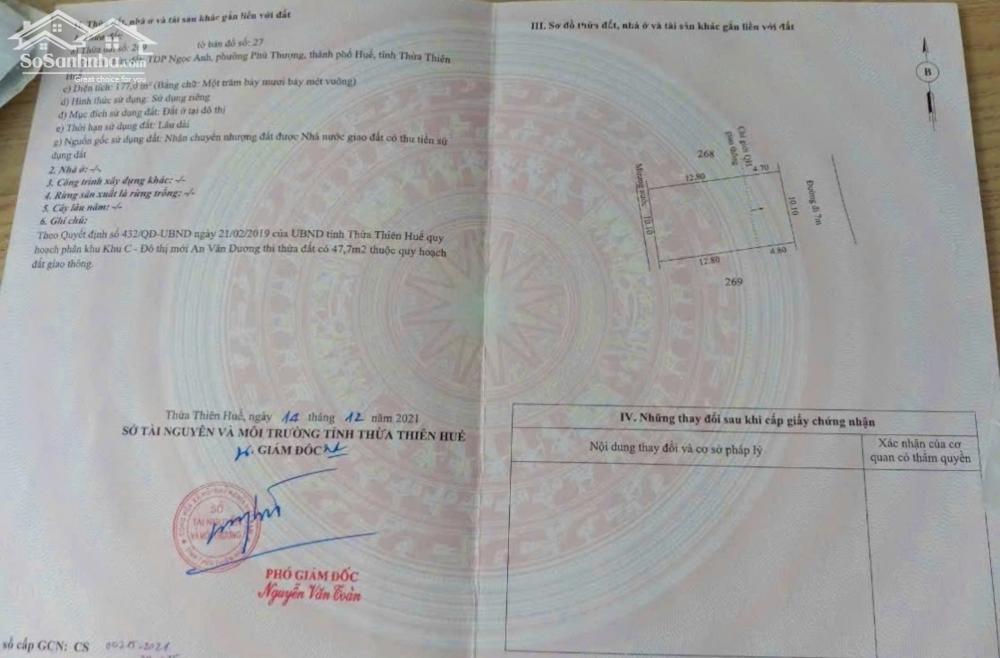 SoSanhnha.com
Great choice for you
Thửa đất, nhà ở và tài sản khác gắn liền với đất
tờ bản đồ số: 27
TDP Ngọc Anh, phường Phú Thượng, thành phố Huế, tỉnh Thừa Thiên
c) Diện tích: 177,0 m² (Bằng chữ: Một trăm bảy mươi bảy mét vuông)
d) Hình thức sử dụng: Sử dụng riêng
đ) Mục đích sử dụng đất: Đất ở tại đô thị
e) Thời hạn sử dụng đất: Lâu dài
g) Nguồn gốc sử dụng đất: Nhận chuyển nhượng đất được Nhà nước giao đất có thu tiền sử
dụng đất
2. Nhà ở: -/-
3. Công trình xây dựng khác: -/-
4. Rừng sản xuất là rừng trồng: -/-
5. Cây lâu năm: -/-
6. Ghi chú:
Theo Quyết định số 432/QĐ-UBND ngày 21/02/2019 của UBND tỉnh Thừa Thiên Huế quy
hoạch phân khu Khu C - Đô thị mới An Vân Dương thì thửa đất có 47,7m2 thuộc quy hoạch
đất giao thông.
Thừa Thiên Huế, ngày 14 tháng 12 năm 2021
SỞ TÀI NGUYÊN VÀ MÔI TRƯỜNG TỈNH THỪA THIÊN HUẾ
GIÁM ĐỐC
SỞ
TÀI NGUYÊN
VÀ MÔI TRƯỜNG
PHÓ GIÁM ĐỐC
Nguyễn Văn Toàn
số cấp GCN: CS
III. Sơ đồ thửa đất, nhà ở và tài sản khác gắn liền với đất
B
268
Chỉ giới QH
giao thông
12.80
4.70
Mương nước
10.10
10.10
Đường đi 7m
12.80
4.80
269
IV. Những thay đổi sau khi cấp giấy chứng nhận
Nội dung thay đổi và cơ sở pháp lý
Xác nhận của cơ
quan có thẩm quyền